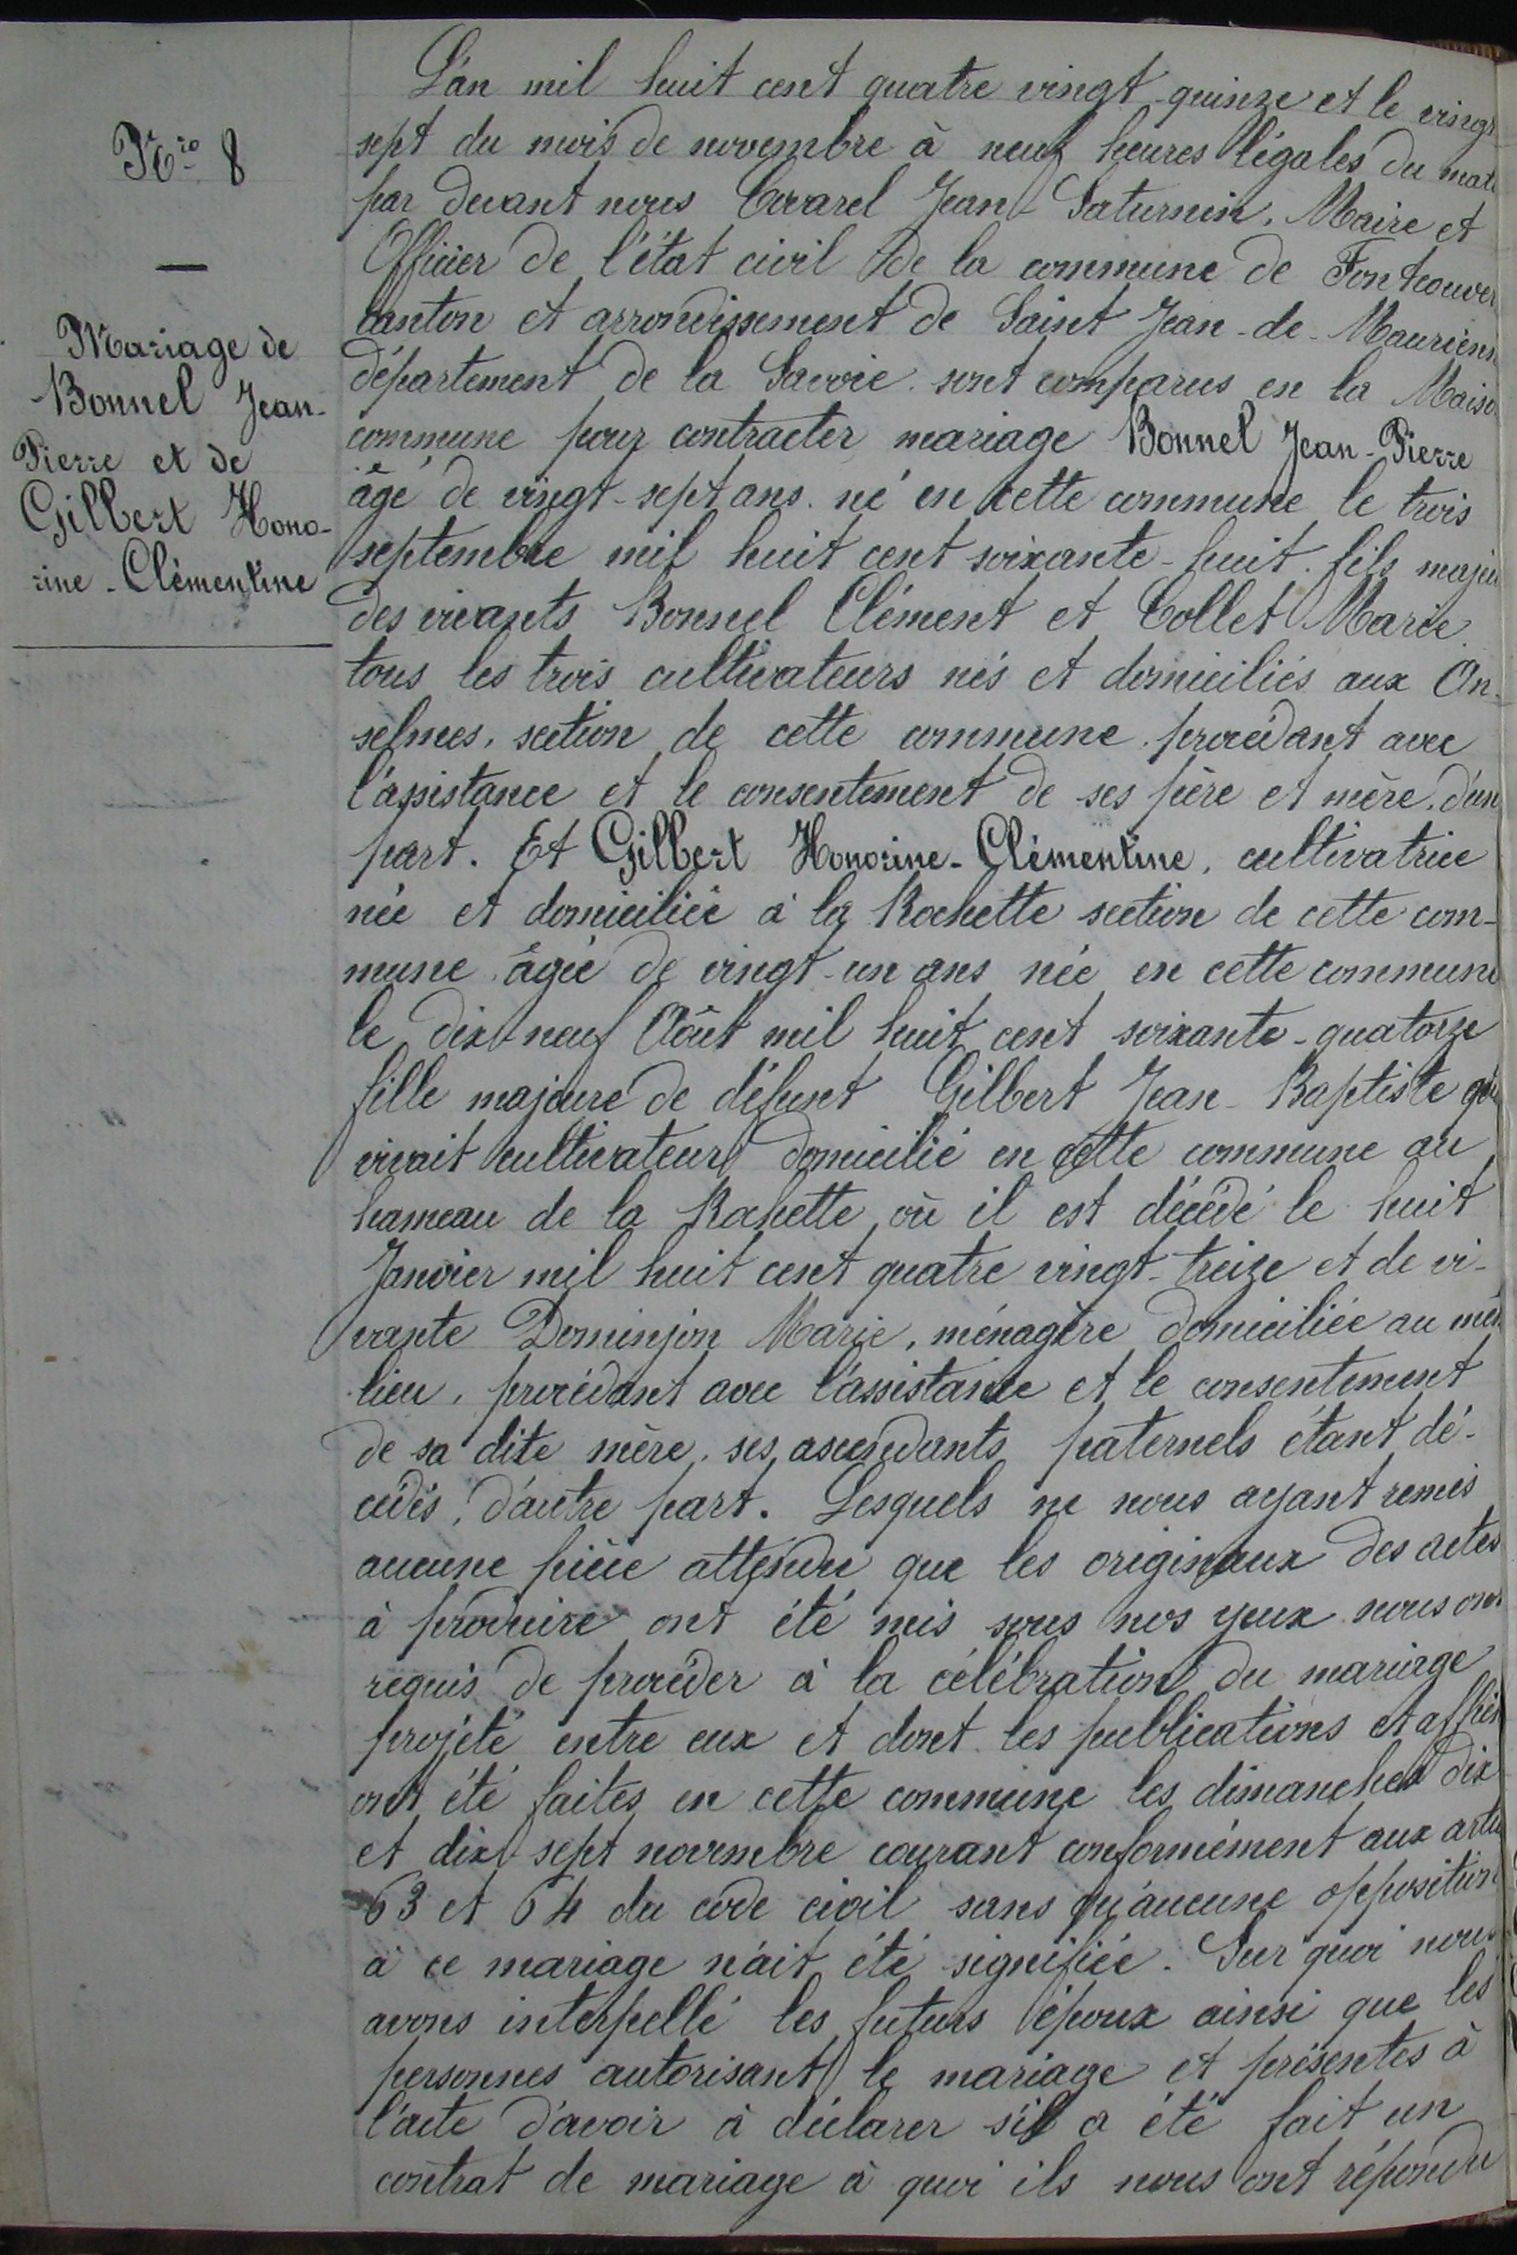 Nro 8
Mariage de
Bonnel Jean-
Pierre et de
Gilbert Hono-
rine-Clémentine
L'an mil huit cent quatre vingt-quinze et le vingt
sept du mois de novembre à neuf heures légales du mati
par devant nous Covarel Jean-Saturnin, Maire et
Officier de l'état civil de la commune de Fontcouver
canton et arrondissement de Saint Jean-de-Maurienn
département de la Savoie. sont comparus en la Maiso
commune pour contracter mariage Bonnel Jean-Pierre
âgé de vingt-sept ans. né en cette commune le trois
septembre mil huit cent soixante-huit. fils majeu
des vivants Bonnel Clément et Collet Marie
tous les trois cultivateurs nés et domiciliés aux An-
selmes, section de cette commune. procédant avec
l'assistance et le consentement de ses père et mère. d'un
part. Et Gilbert Honorine-Clémentine, cultivatrice
née et domiciliée à la Rochette section de cette com-
mune. âgée de vingt-un ans née en cette commune
le dix-neuf Août mil huit cent soixante-quatorze
fille majeure de défunt Gilbert Jean-Baptiste qui
vivait cultivateur domicilié en cette commune au
hameau de la Rochette, où il est décédé le huit
Janvier mil huit cent quatre vingt-treize et de vi-
vante Dominjon Marie, ménagère domiciliée au mêm
lieu, procédant avec l'assistance et le consentement
de sa dite mère. ses ascendants paternels étant dé-
cédés, d'autre part. Lesquels ne nous ayant remis
aucune pièce attendu que les originaux des actes
à produire ont été mis sous nos yeux nous ont
requis de procéder à la célébration du mariage
projeté entre eux et dont les publications et affich
ont été faites en cette commune les dimanches dix
et dix-sept novembre courant conformément aux artic
63 et 64 du code civil sans qu'aucune opposition
à ce mariage n'ait été signifiée. Sur quoi nous
avons interpellé les futurs époux ainsi que les
personnes autorisant le mariage et présentes à
l'acte d'avoir à déclarer s'il a été fait un
contrat de mariage à quoi ils nous ont répondu